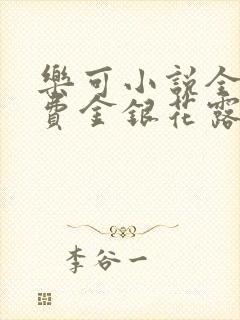 樂可小說全
費金銀花露
李谷一